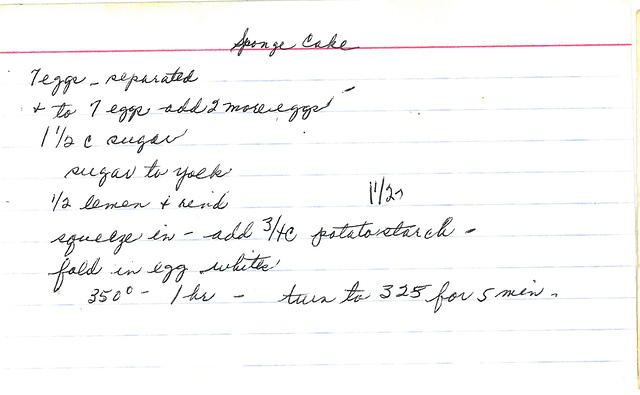 Sponge Cake
7 eggs - separated
+ to 7 eggs add 2 more eggs -
1 1/2 c sugar
sugar to yolk
1/2 lemon + rind
1 1/2
squeeze in - add 3/4c potato starch -
fold in egg whites
350° - 1 hr - turn to 325 for 5 min.